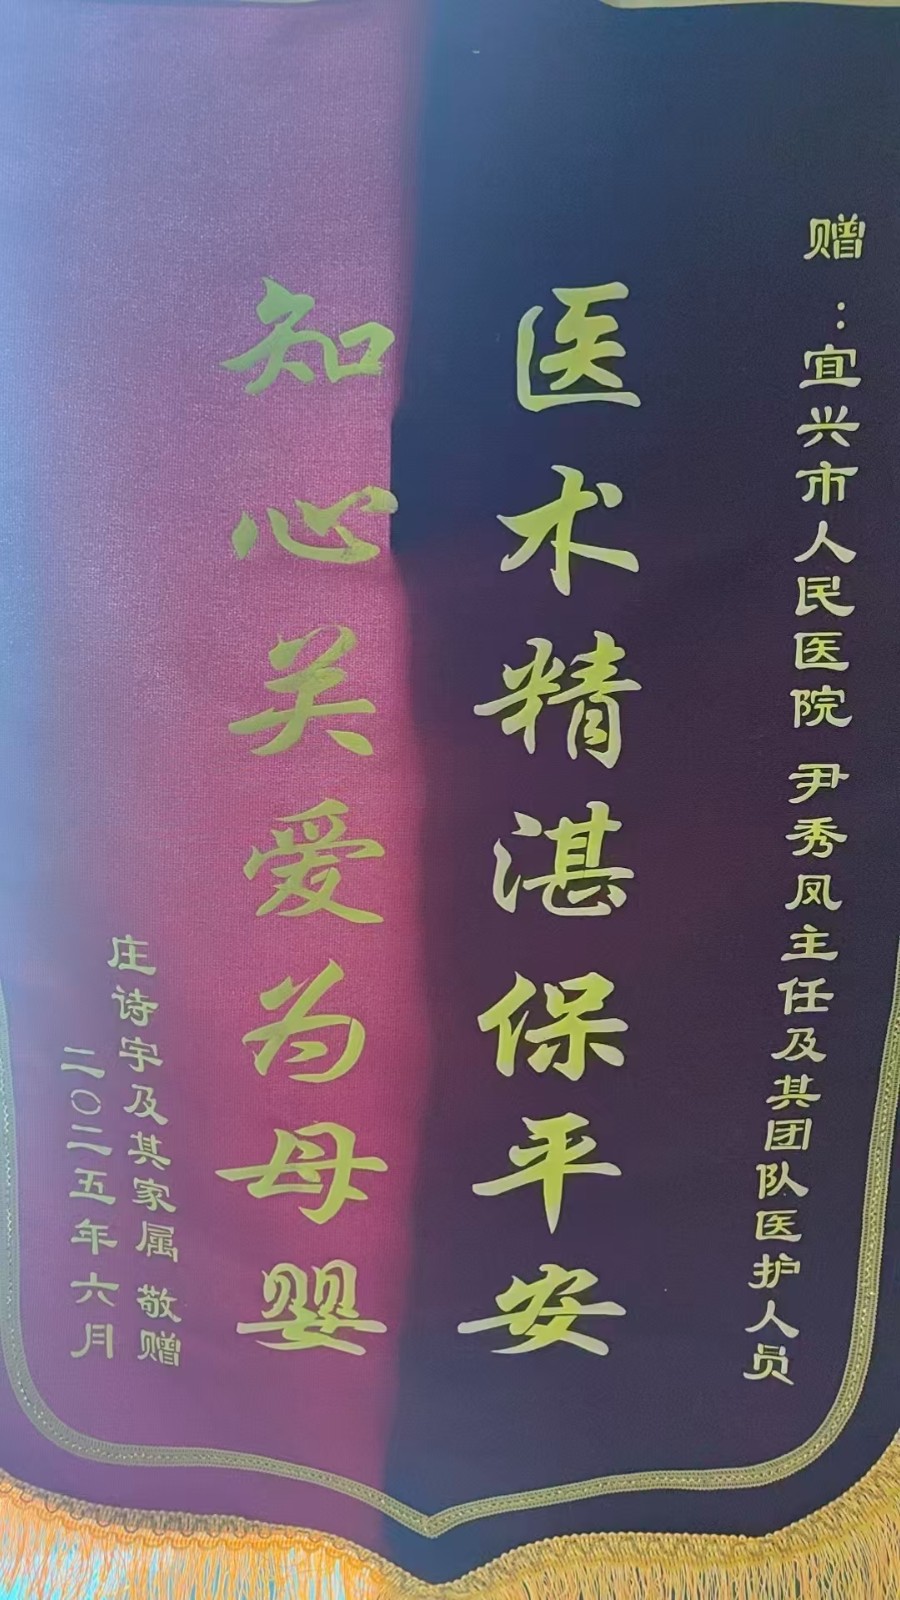 赠：宜兴市人民医院 尹秀凤主任及其团队医护人员
医术精湛保平安
知心关爱为母婴
庄诗宇及其家属 敬赠
二〇二五年六月